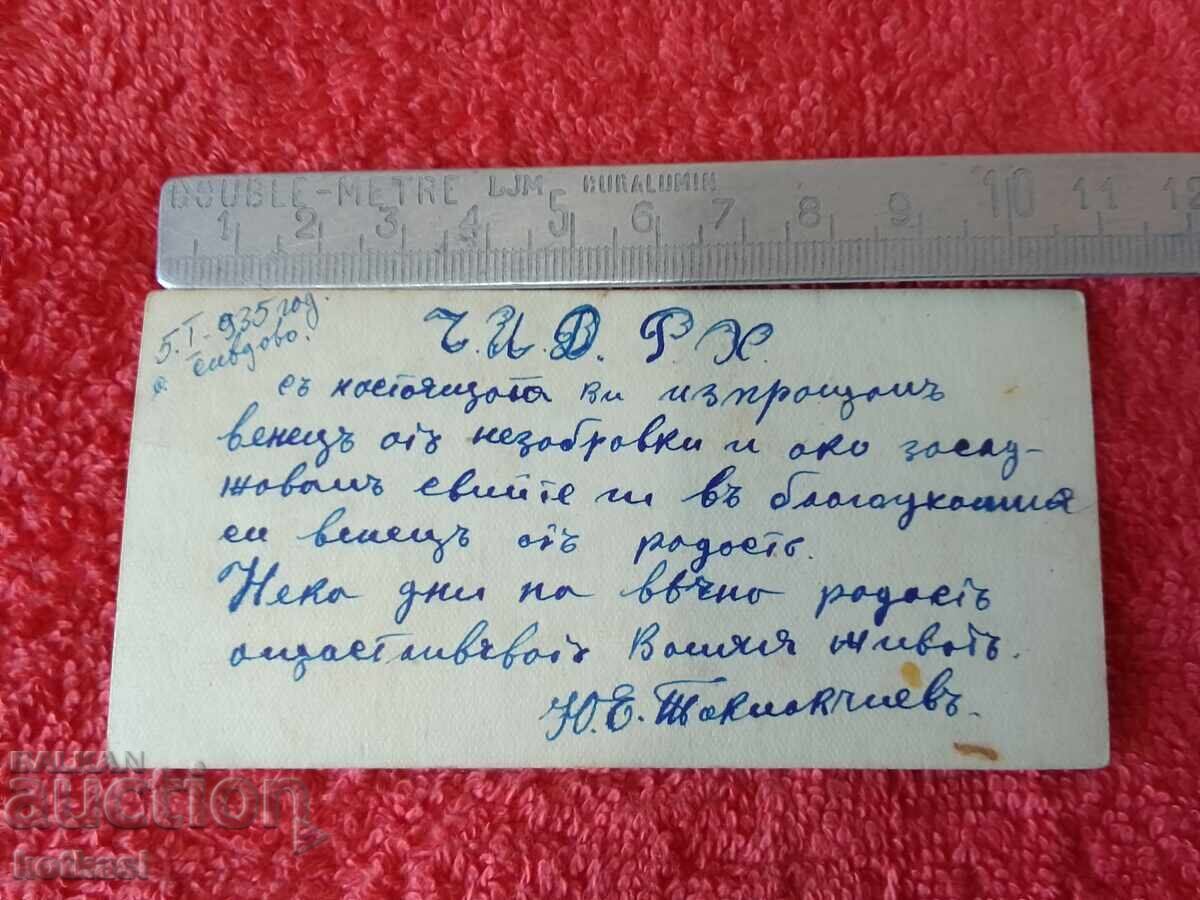 DOUBLE-METRE LJM DURALUMIN
1 2 3 4 5 6 7 8 9 10 11 12
5.I.935 год.
с.
Ч.И.Д. Р.Х.
съ настоящата Ви изпращамъ
венецъ отъ незабравки и ако заслу-
жавамъ свийте ги въ благоуханния
си венецъ отъ радость.
Нека дни на вѣчна радость
ощастливяватъ Вашия животъ.
Ю.Е.Токмакчиевъ.
BALKAN
auction
hotkasi